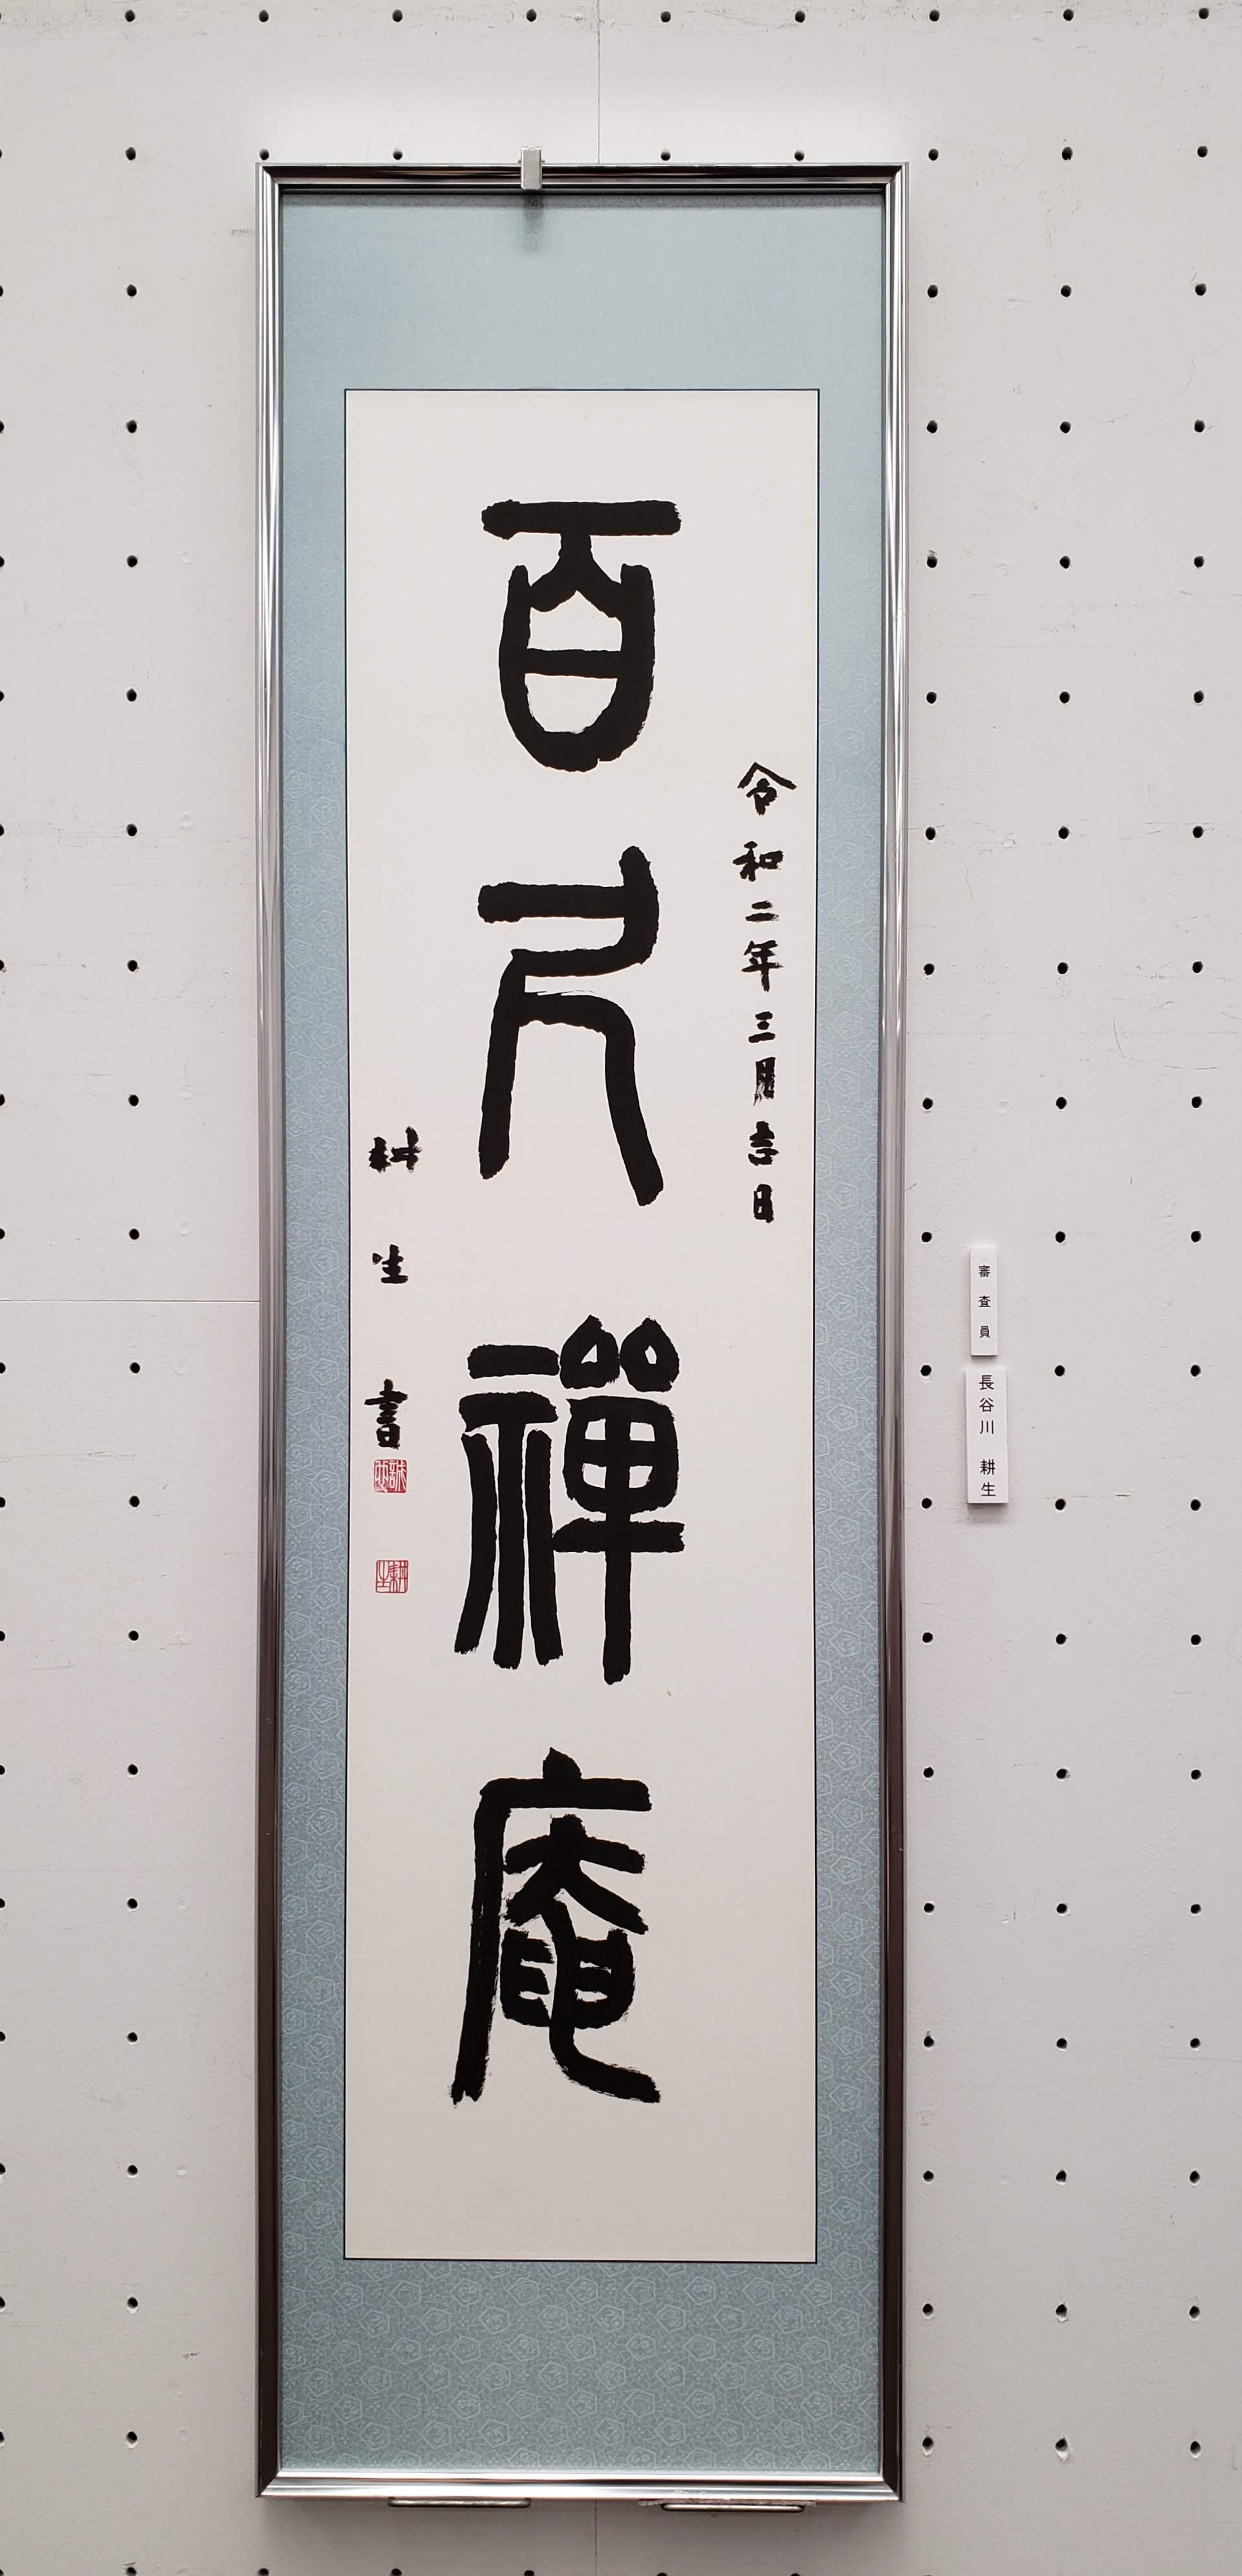 令和二年三月吉日
百禪庵
耕生書
審査員
長谷川 耕生